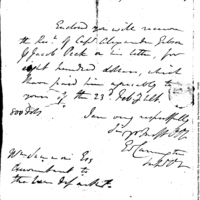 Enclosed you will receive
the Rec.t of Capt. Alexander Gibson
& Jacob Peck on his letter, for
eight hundred dollars, which
I have paid him agreeably to
yours of the 23.d Feby Ult.
800 Dolls. I am very respectfully
Sir
Ed Carrington
Wm Simmons Esq
Accountant to
the War Depart.